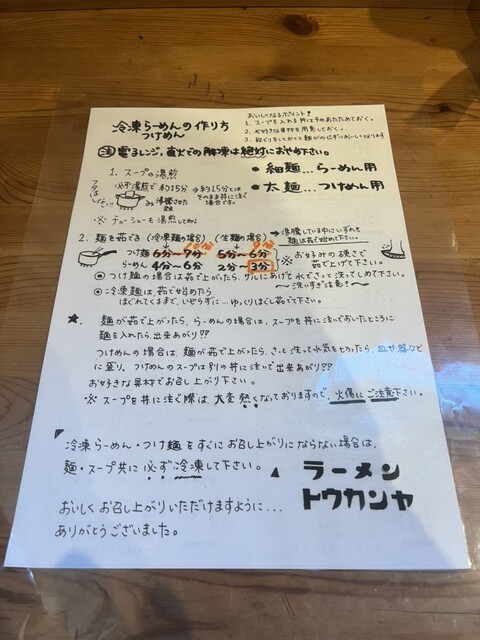 冷凍らーめんの作り方
つけめん
おいしくなるポイント!
1. スープを入れる丼は予めあたためておく。
2. お好きな具材を用意しておく。
㊟電子レンジ、直火での解凍は絶対におやめ下さい。
• 細麺…らーめん用
• 太麺…つけめん用
1. スープの湯煎
必ず湯煎で約15分
→約15分たったら
そのまま丼に注ぐ
沸騰させたお湯
※ チャーシューも湯煎してね♪
2. 麺を茹でる (冷凍麺の場合) (生麺の場合)
→沸騰している中にいずれも
麺は茹で始めて下さい。
つけ麺 6分〜7分 5分〜6分
らーめん 4分〜6分 2分〜3分
※ お好みの硬さで
茹で上げて下さい。
◎ つけ麺の場合は茹で上がったら、ザルにあげて水でさっと洗ってしめて下さい。
〜洗いすぎ注意!〜
◎ 冷凍麺は、茹で始めたら
ほぐれてくるまで、いじらずに…ゆっくりほぐし茹でて下さい。
★. 麺が茹で上がったら、らーめんの場合は、スープを丼に注いでおいたところに
麺を入れたら、出来あがり!!
つけめんの場合は、麺が茹で上がったら、さっと洗って水気を切ったら、皿や器など
に盛り、つけめんのスープは別の丼に注いで出来あがり!!
お好きな具材でお召し上がり下さい。
※ スープを丼に注ぐ際は、大変熱くなっておりますので、火傷にご注意下さい。
冷凍らーめん・つけ麺をすぐにお召し上がりにならない場合は、
麺・スープ共に必ず冷凍して下さい。
ラーメン
トウカンヤ
おいしくお召し上がりいただけますように...
ありがとうございました。